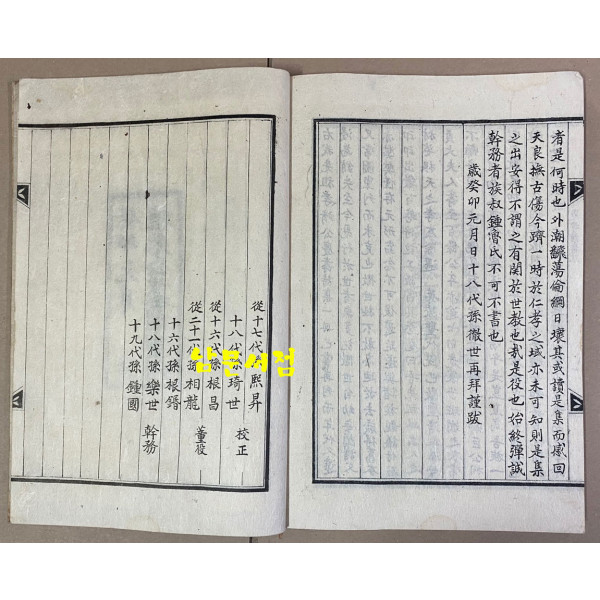 者是何時也外潮飜蕩倫綱日壞其或讀是集而感回
天良撫古傷今躋一時於仁孝之域亦未可知則是集
之出安得不謂之有関於世敎也哉是役也始終殫誠
幹務者族叔鍾魯氏不可不書也
歲癸卯元月日十八代孫徹世再拜謹跋
從十七代孫熙昇
十八代孫琦世 校正
從十六代孫根昌
從二十一代孫相龍 董役
十六代孫根
十八代孫樂世 幹務
十九代孫鍾國
남문서점